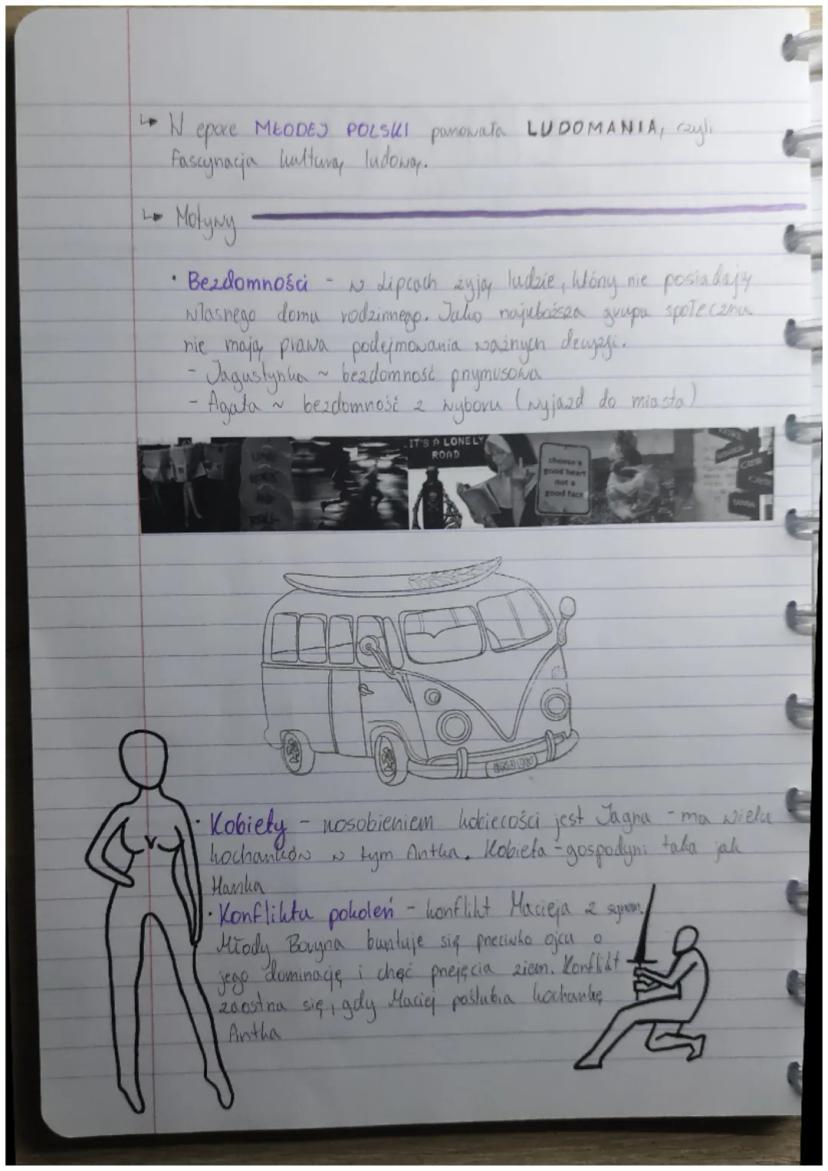 ↳ W epoce MŁODEJ POLSKI panowała LUDOMANIA, czyli
fascynacja kulturą ludową.
↳ Motywy
• Bezdomności - w Lipcach żyją ludzie, którzy nie posiadają
własnego domu rodzinnego. Jako najuboższa grupa społeczna
nie mają prawa podejmowania ważnych decyzji.
- Jagustynka ~ bezdomność przymusowa
- Agata ~ bezdomność z wyboru (wyjazd do miasta)
IT'S A LONELY
ROAD
choose a
good heart
not a
good face
• Kobiety - uosobieniem kobiecości jest Jagna - ma wielu
kochanków w tym Antka. Kobieta - gospodyni taka jak
Hanka
• Konfliktu pokoleń - konflikt Macieja z synem.
Młody Boryna buntuje się przeciwko ojcu o
jego dominację i chęć przejęcia ziem. Konflikt
zaostrza się, gdy Maciej poślubia kochankę
Antka